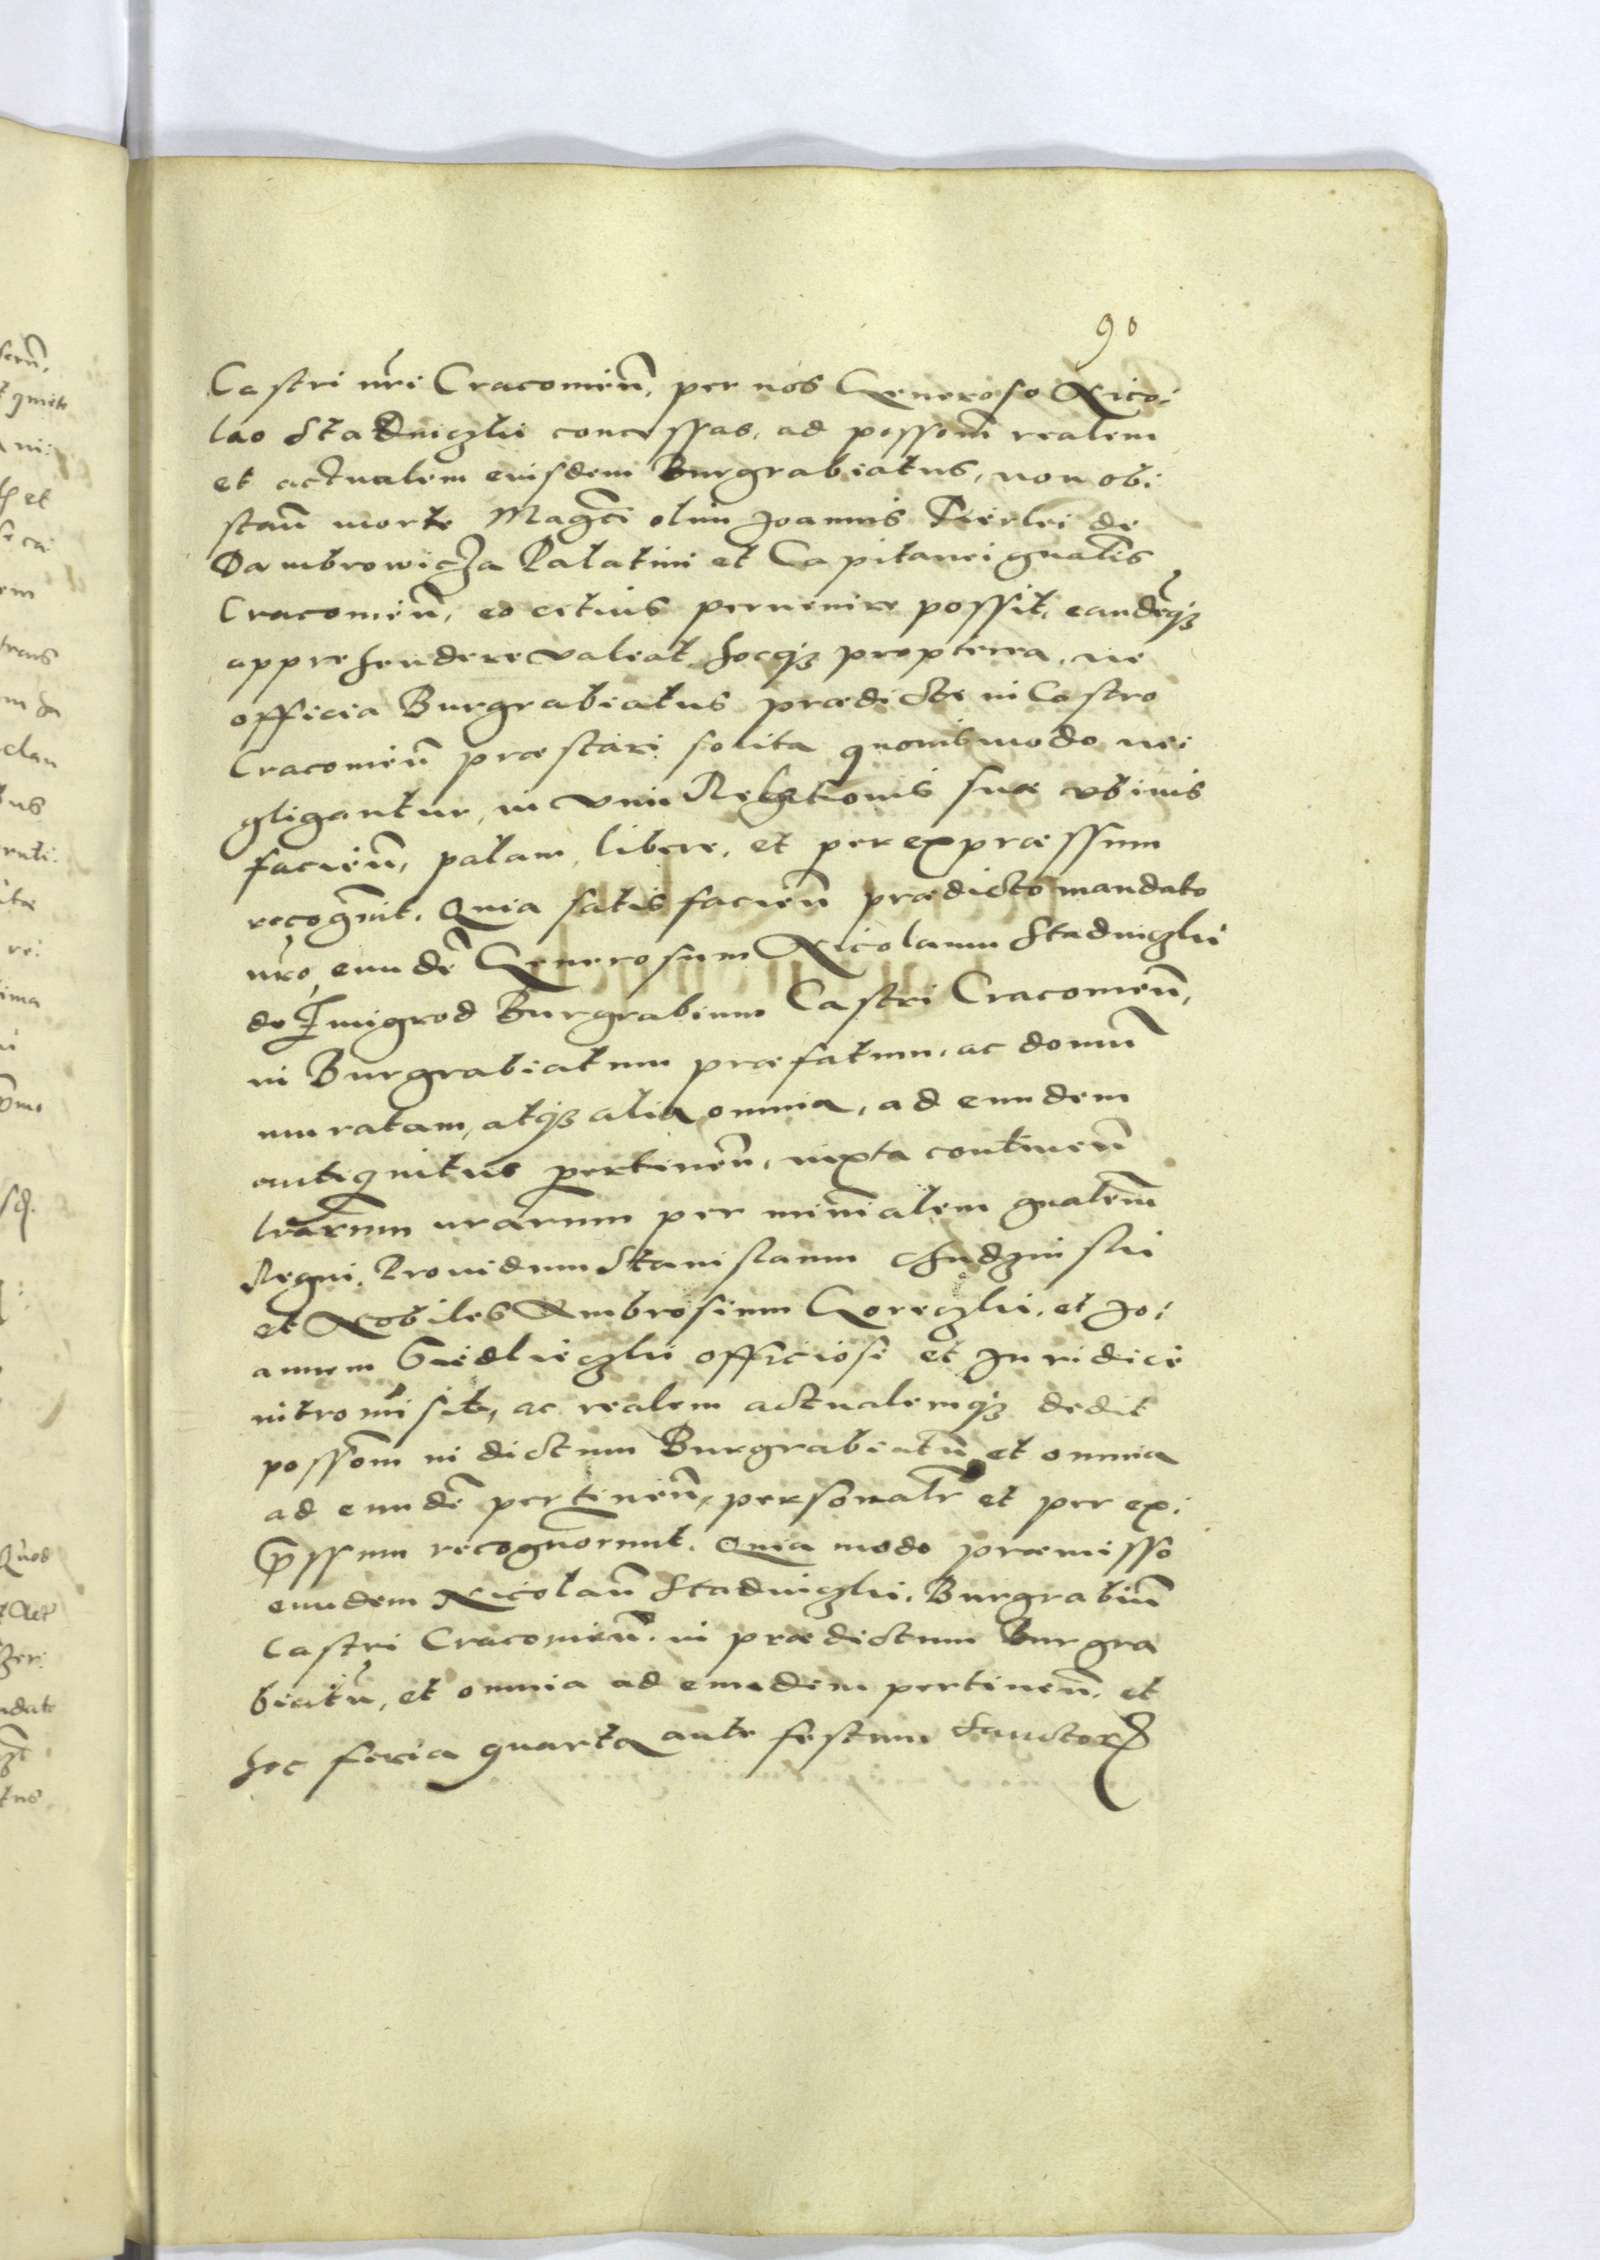 90
Castri nr̃i Cracouien̄, per nos Generoso Nico:
lao Stadniczki concessas, ad possom̄ realem
et actualem eiusdem Burgrabiatus, non ob:
stan̄ morte Magc̄i olim Joannis Fierlei de
Dambrowicza Palatini et Capitanei gnalis
Cracouien̄, eo citius peruenire possit, eandēq3
apprehendere valeat, hocq3 propterea, ne
officia Burgrabiatus prædicti in Castro
Cracouien̄ præstari solita quouismodo ne:
gligantur, in vim Relationis suæ vbiuis
facien̄, palam, libere, et per expræssum
recogn̄it. Quia satisfacien̄ prædicto mandato
nr̃o, eundē Generosum Nicolaum Stadniczki
de Zmigrod Burgrabium Castri Cracouien̄,
in Burgrabiatum præfatum, ac domum̄
muratam, atq3 alia omnia, ad eundem
antiquitus pertinen̄, iuxta continen̄
lrarum nrarum per minialem gnalem
Regni, Prouidum Stanislaum Chudzinski
et Nobiles Ambrosium Goreczki, et Jo:
annem Giedlieczki officiose et Juridice
intromisit, ac realem actualemq3 dedit
possom̄ in dictum Burgrabiatū et omnia
ad eundē pertinen̄, personalr̄ et per ex:
p̄ssum recognouerunt. Quia modo præmisso
eundem Nicolaū Stadniczki, Burgrabiū
Castri Cracouien̄. in prædictum Burgra
biatū, et omnia ad eundem pertinen̄, et
hoc feria quarta ante festum Sanctor̃